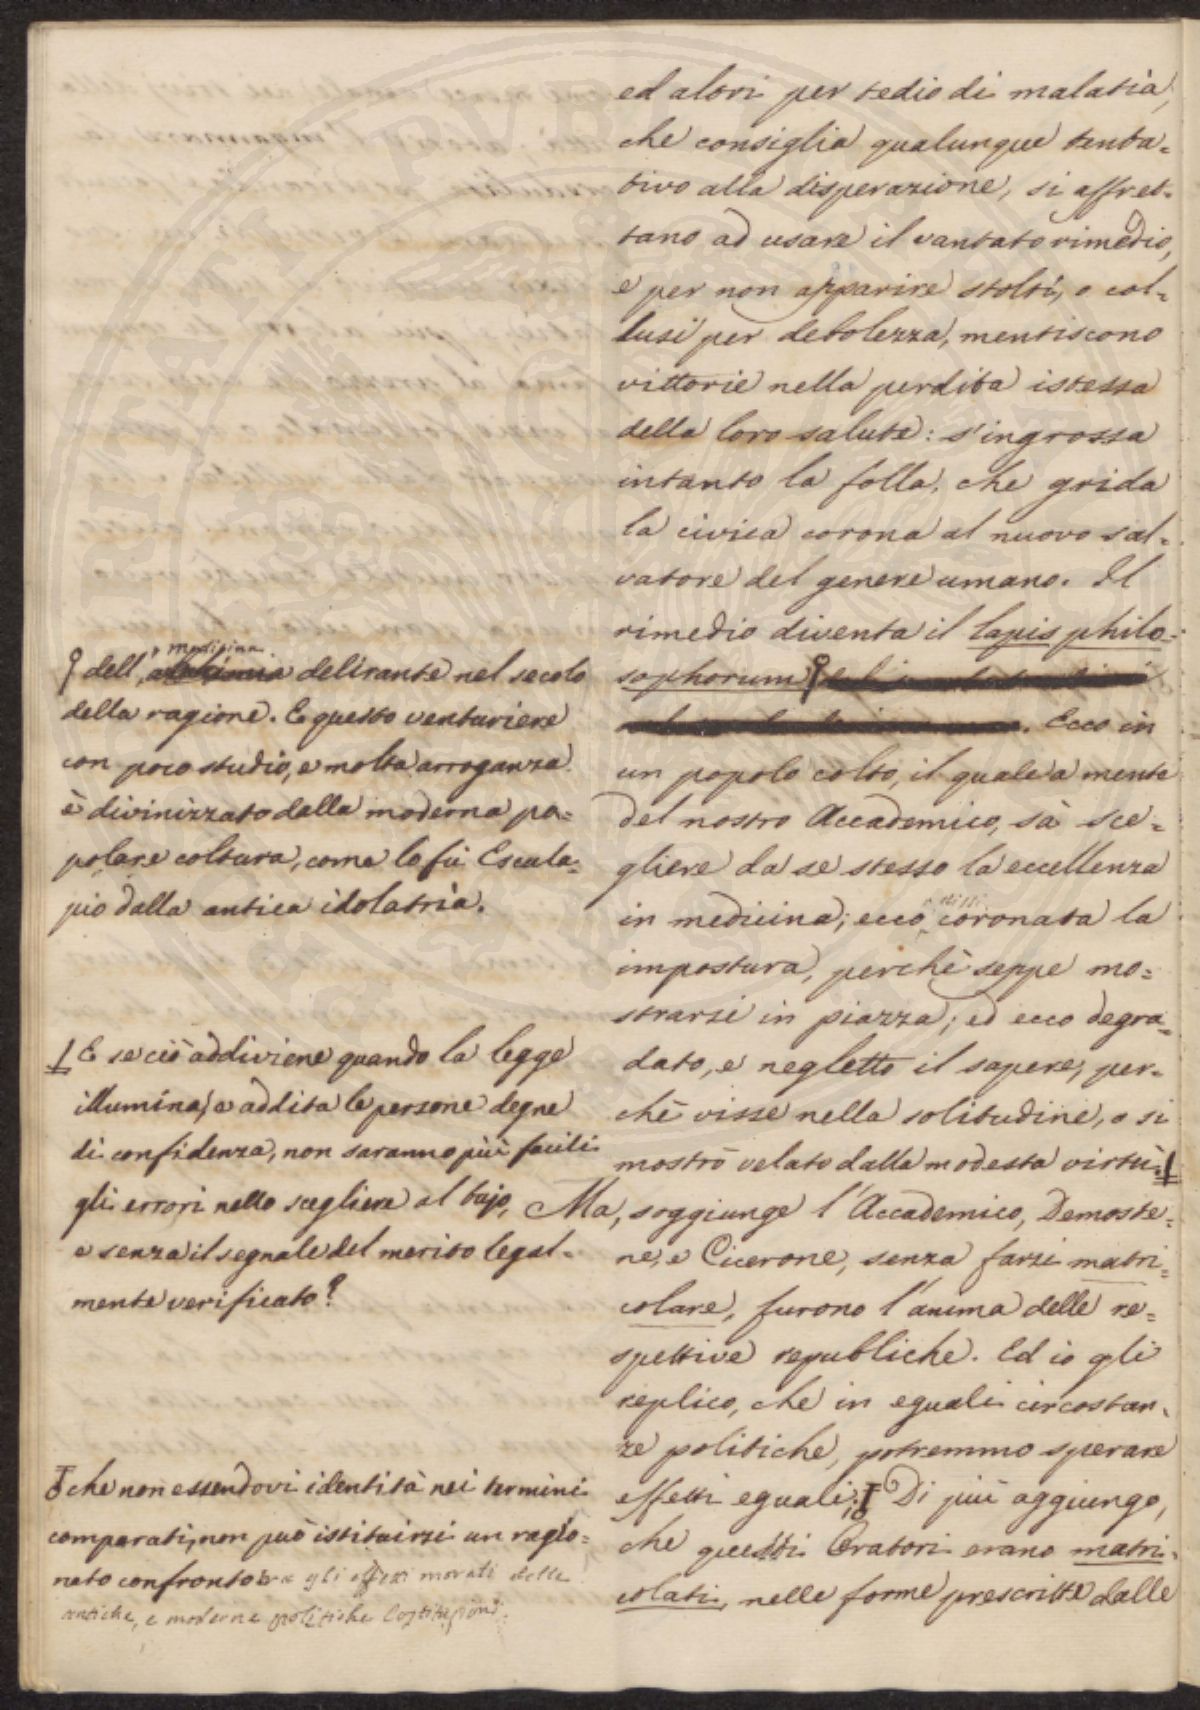 ed altri per tedio di malatia,
che consiglia qualunque tenta=
tivo alla disperazione, si affret=
tano ad usare il vantato rimedio,
e per non apparire stolti, o col=
lusi per debolezza, mentiscono
vittorie nella perdita istessa
della loro salute: s'ingrossa
intanto la folla, che grida
la civica corona al nuovo sal=
vatore del genere umano. Il
rimedio diventa il lapis philo=
sophorum
. Ecco in
un popolo colto, il quale a mente
del nostro Accademico, sà sce=
gliere da se stesso la eccellenza
in medicina; ecco coronata la
impostura, perchè seppe mo=
strarsi in piazza; ed ecco degra=
dato, e negletto il sapere, per=
chè visse nella solitudine, o si
mostrò velato dalla modesta virtù.
Ma, soggiunge l'Accademico, Demoste=
ne, e Cicerone, senza farsi matri=
colare, furono l'anima delle re=
spettive republiche. Ed io gli
replico, che in eguali circostan=
ze politiche, potremmo sperare
effetti eguali; Di più aggiungo,
che questi Oratori erano matri=
colati, nelle forme prescritte dalle
medicina
dell' alchimia delirante nel secolo
della ragione. E questo venturiere
con poco studio, e molta arroganza
è divinizzato dalla moderna po=
polare coltura, come lo fù Escula=
pio dalla antica idolatria.
E se ciò addiviene quando la legge
illumina, e addita le persone degne
di confidenza, non saranno più facili
gli errori nello scegliere al bujo,
e senza il segnale del merito legal=
mente verificato?
che non essendovi identità nei termini
comparati, non può istituirsi un ragio=
nato confronto tra gli effetti morali delle
antiche, e moderne politiche Costituzioni.